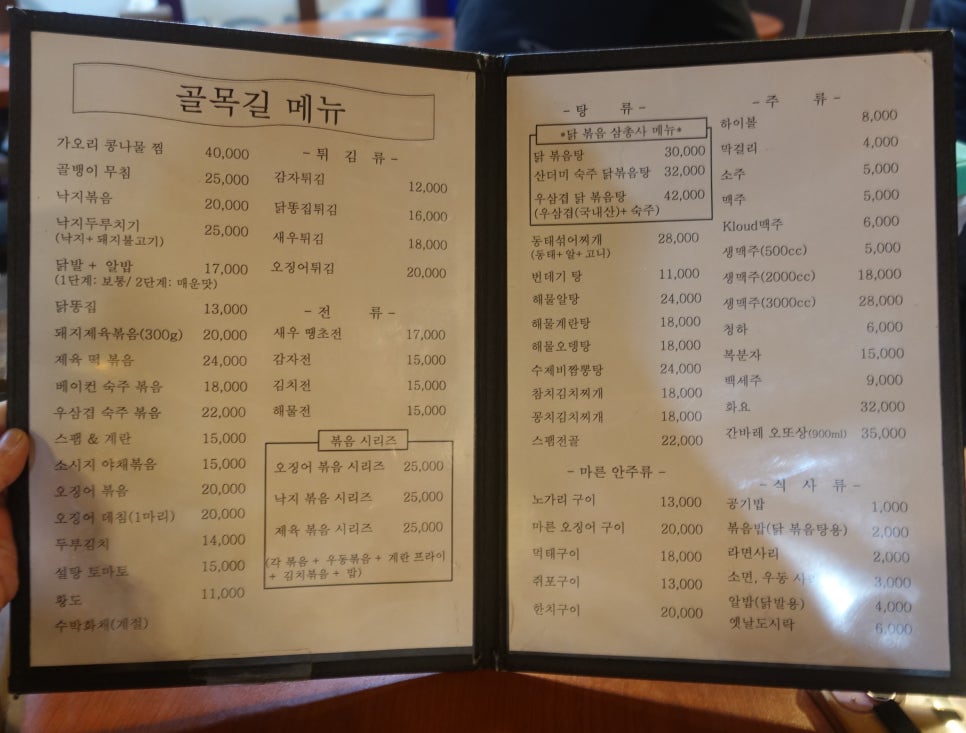 골목길 메뉴
가오리 콩나물 찜 40,000
골뱅이 무침 25,000
낙지볶음 20,000
낙지두루치기 25,000
(낙지+ 돼지불고기)
닭발 + 알밥 17,000
(1단계: 보통/ 2단계: 매운맛)
닭똥집 13,000
돼지제육볶음(300g) 20,000
제육 떡 볶음 24,000
베이컨 숙주 볶음 18,000
우삼겹 숙주 볶음 22,000
스팸 & 계란 15,000
소시지 야채볶음 15,000
오징어 볶음 20,000
오징어 데침(1마리) 20,000
두부김치 14,000
설탕 토마토 15,000
황도 11,000
수박화채(계절)
- 튀 김 류 -
감자튀김 12,000
닭똥집튀김 16,000
새우튀김 18,000
오징어튀김 20,000
- 전 류 -
새우 땡초전 17,000
감자전 15,000
김치전 15,000
해물전 15,000
볶음 시리즈
오징어 볶음 시리즈 25,000
낙지 볶음 시리즈 25,000
제육 볶음 시리즈 25,000
(각 볶음 + 우동볶음 + 계란 프라이
+ 김치볶음 + 밥)
- 탕 류 -
*닭 볶음 삼총사 메뉴*
닭 볶음탕 30,000
산더미 숙주 닭볶음탕 32,000
우삼겹 닭 볶음탕 42,000
(우삼겹(국내산)+ 숙주)
동태섞어찌개 28,000
(동태+알+고니)
번데기 탕 11,000
해물알탕 24,000
해물계란탕 18,000
해물오뎅탕 18,000
수제비짬뽕탕 24,000
참치김치찌개 18,000
꽁치김치찌개 18,000
스팸전골 22,000
- 마른 안주류 -
노가리 구이 13,000
마른 오징어 구이 20,000
먹태구이 18,000
쥐포구이 13,000
한치구이 20,000
- 주 류 -
하이볼 8,000
막걸리 4,000
소주 5,000
맥주 5,000
Kloud맥주 6,000
생맥주(500cc) 5,000
생맥주(2000cc) 18,000
생맥주(3000cc) 28,000
청하 6,000
복분자 15,000
백세주 9,000
화요 32,000
간바레 오또상(900ml) 35,000
- 식 사 류 -
공기밥 1,000
볶음밥(닭 볶음탕용) 2,000
라면사리 2,000
소면, 우동 3,000
알밥(닭발용) 4,000
옛날도시락 6,000